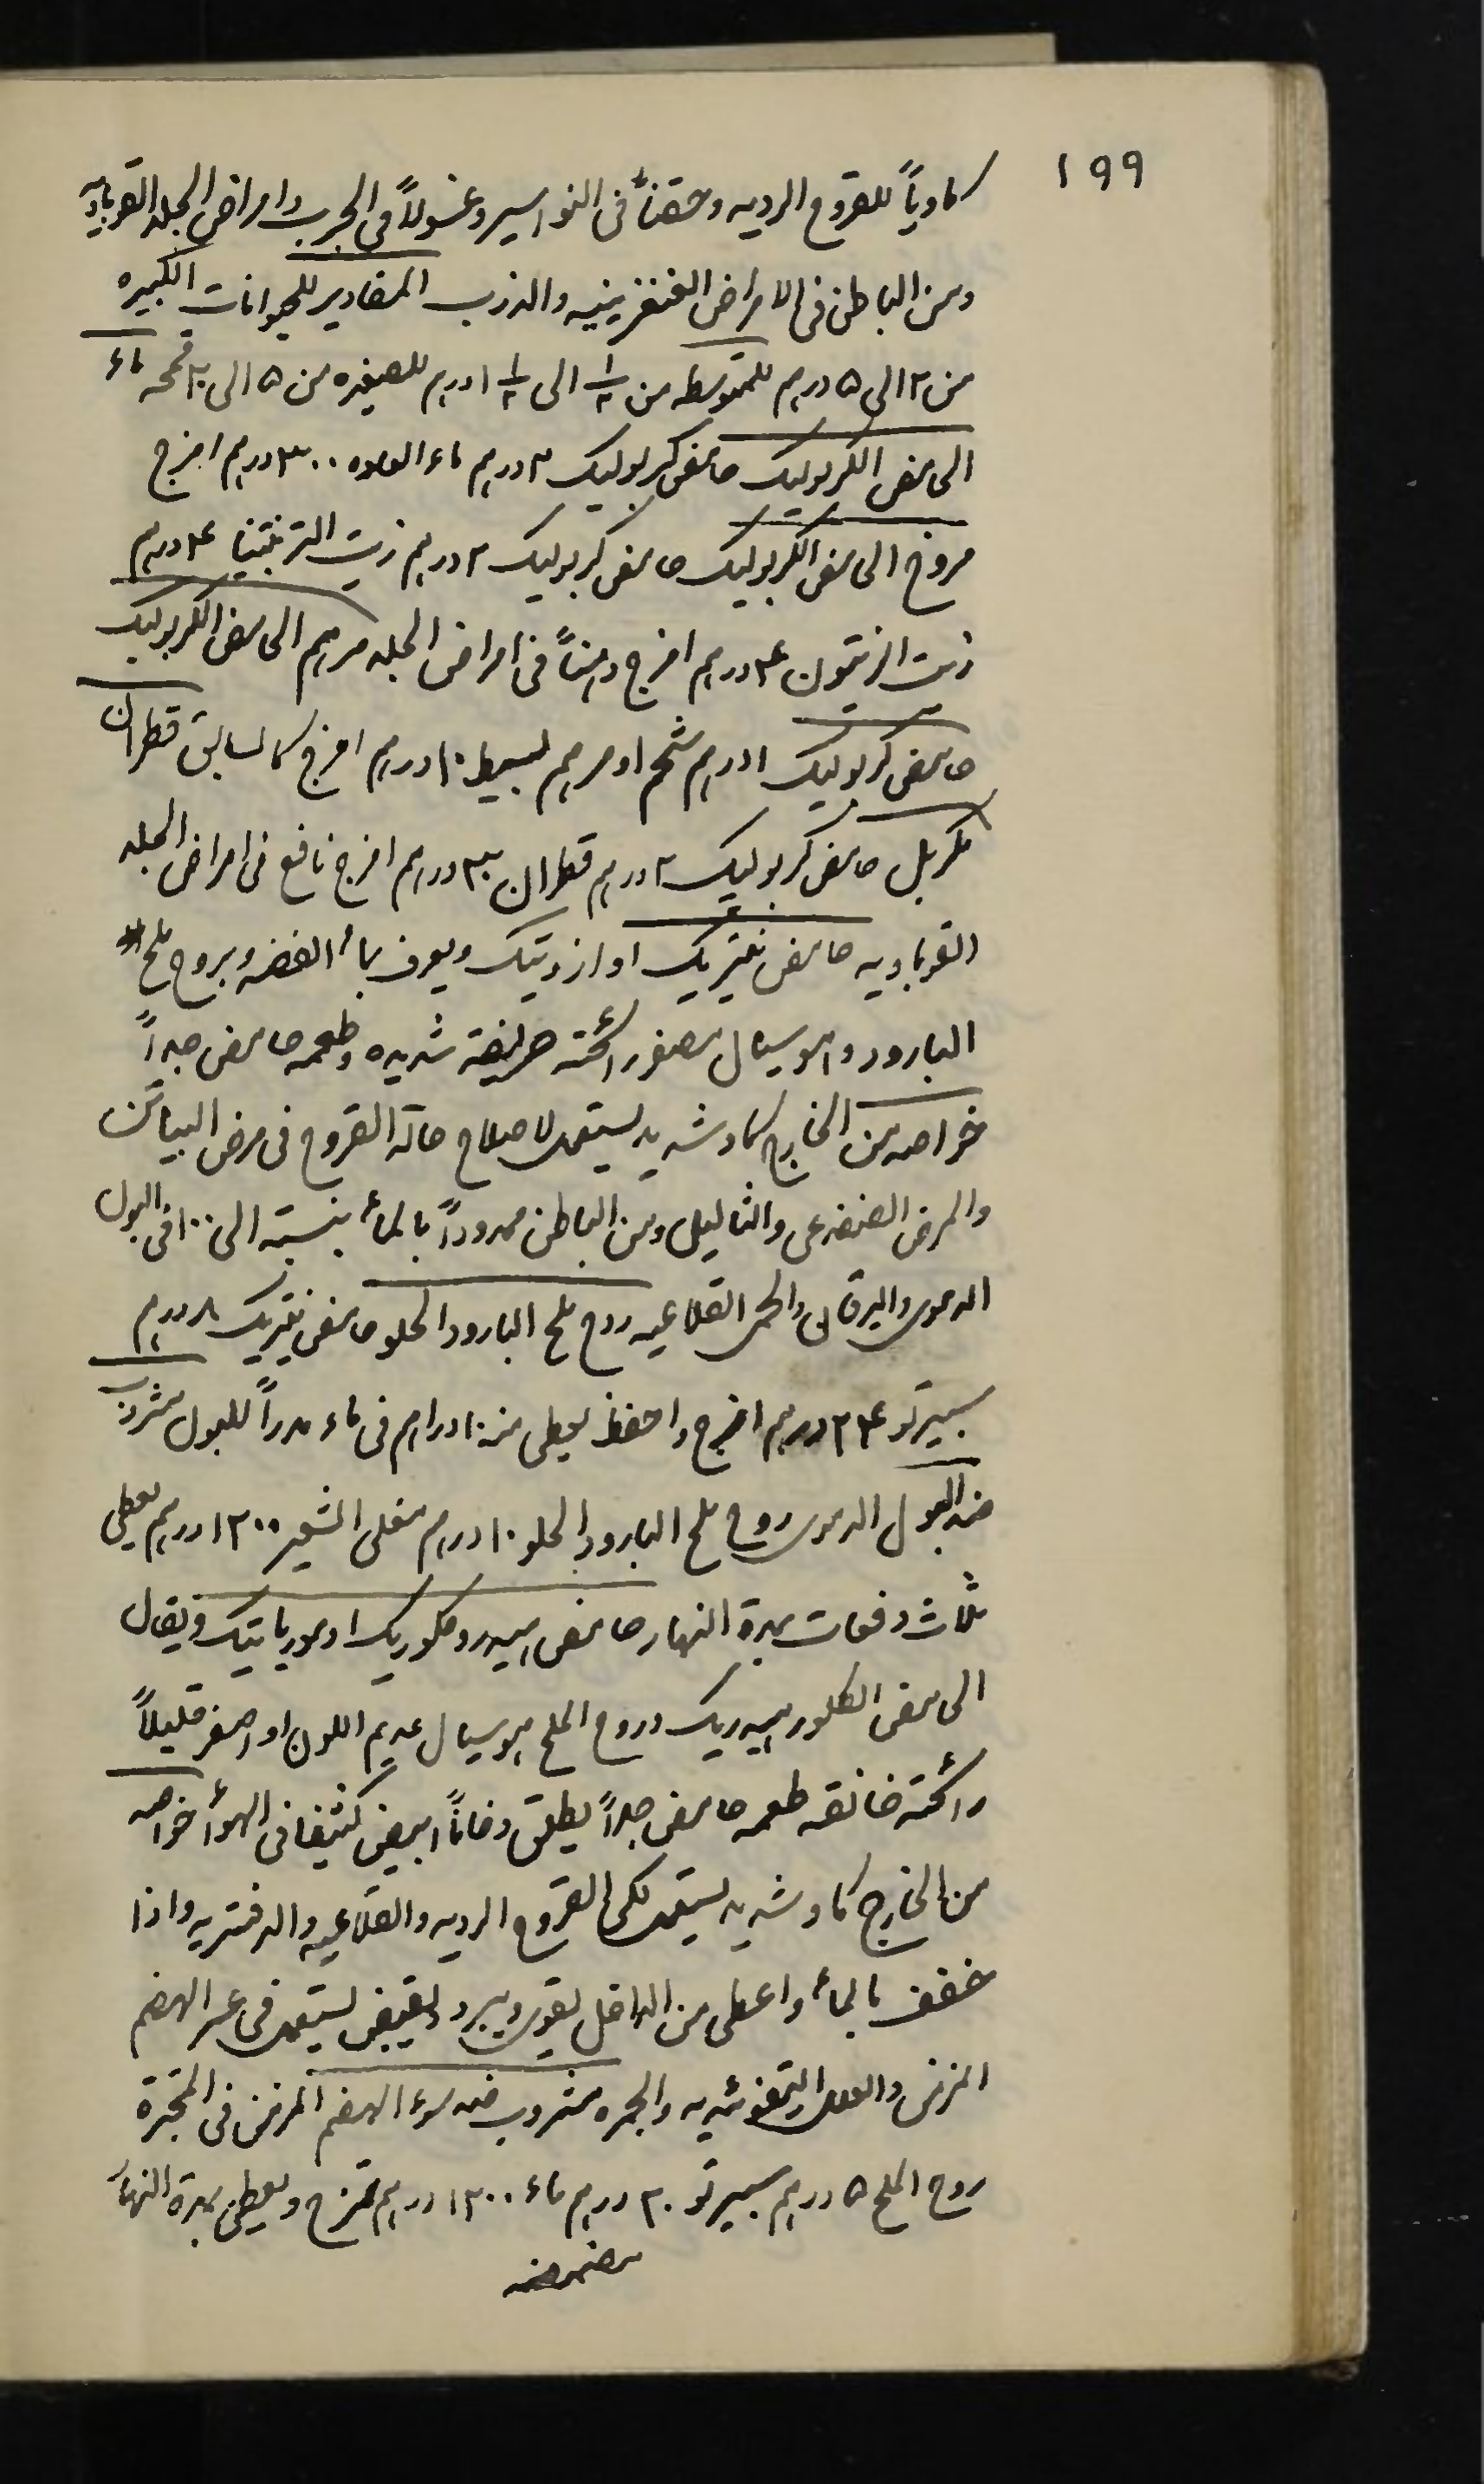 ١٩٩
كاوياً للقروح الرديه وحقناً فى النواسير وغسولاً فى الجرب وامراض الجلد القوباويه
ومن الباطن فى الامراض الغنغرينيه والذرب المقادير للحيوانات الكبيره
من ٢ الى ٥ درهم للمتوسطه من ١/٢ الى ١ ١/٢ درهم للصغيره من ٥ الى ٢٠ قمحه ماء
الحامض الكربوليك حامض كربوليك ٢ درهم ماء العاده ٣٠٠ درهم امزج
مروخ الحامض الكربوليك حامض كربوليك ٢ درهم زيت التربنتينا ٢٤ درهم
زيت الزيتون ٢٤ درهم امزج دهناً فى امراض الجلد مرهم الحامض الكربوليك
حامض كربوليك ١ درهم شحم او مرهم بسيط ١٠ درهم امزج كالسابق قطران
مكربل حامض كربوليك ٢ درهم قطران ٣٠ درهم امزج نافع فى امراض الجلد
القوباويه حامض نيتريك او ازوتيك ويعرف بمأ الفضه وبروح ملح
البارود وهو سيال مصفر رائحته حريفة شديده وطعمه حامض جداً
خواصه من الخارج كاو شديد يستعمل لاصلاح حالة القروح فى مرض البياتن
والمرض الضفدعى والثاليل ومن الباطن ممدوداً بالمأ بنسبة الى ١٠٠ فى البول
الدموى واليرقان والحمى القلاعيه روح ملح البارود الحلو حامض نيتريك ٨ درهم
سبيرتو ٢٤ درهم امزج واحفظ يعطى منه ١٠ دراهم فى ماء مدراً للبول مشروب
ضد البول الدموى روح ملح البارود الحلو ١٠ درهم مغلى الشعير ١٢٠٠ درهم يعطى
ثلاث دفعات بمدة النهار حامض هيدروكلوريك او مورياتيك ويقال
الحامض الكلورهيدريك وروح الملح هو سيال عديم اللون او اصفر قليلاً
رائحته خانقه طعمه حامض جداً يطلق دخاناً ابيض كثيفا فى الهوأ خواصه
من الخارج كاو شديد يستعمل لكى القروح الرديه والقلاعيه والدفتريه واذا
خفف بالمأ واعطى من الداخل يقوى ويبرد ويقبض يستعمل فى عسر الهضم
المزمن والعلل التيفوئيديه والجمره مشروب ضد سوء الهضم المزمن فى المجترة
روح الملح ٥ درهم سبيرتو ٢٠ درهم ماء ١٢٠٠ درهم تمزج ويعطى بمدة النهار
مضمضه